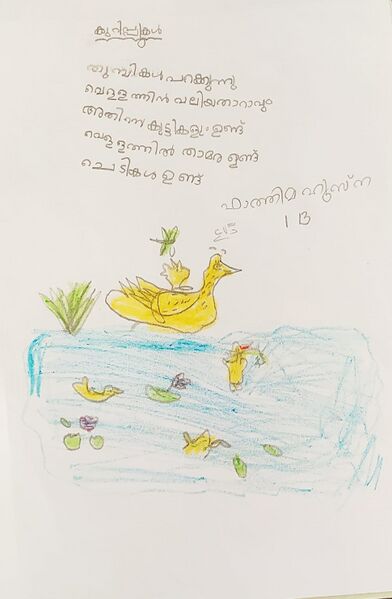 കുറിപ്പുകൾ
തുമ്പികൾ പറക്കുന്നു
വെള്ളത്തിൻ വലിയതാറാവും
അതിന്നെ കുട്ടികളും ഉണ്ട്
വെള്ളത്തിൽ താമര ഉണ്ട്
ചെടികൾ ഉണ്ട്
ഫാത്തിമ ഹുസ്ന
1 B